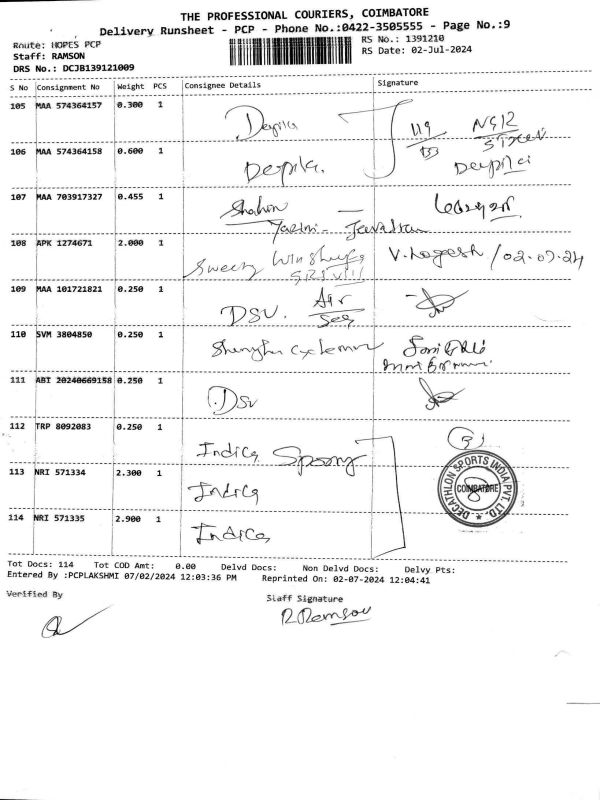 THE PROFESSIONAL COURIERS, COIMBATORE
Delivery Runsheet - PCP - Phone No.:0422-3505555 - Page No.:9
Route: HOPES PCP
RS No.: 1391210
Staff: RAMSON
RS Date: 02-Jul-2024
DRS No.: DCJB139121009
S No Consignment No Weight PCS Consignee Details Signature
105 MAA 574364157 0.300 1 Depika 119 NGR
Street
106 MAA 574364158 0.600 1 Depika. Deepika
107 MAA 703917327 0.455 1 Shahin
108 APK 1274671 2.000 1 Sweety V. Logesh / 02.07.24
109 MAA 101721821 0.250 1 DSV. Air
Sea
110 SVM 3804850 0.250 1
111 ABT 20240669158 0.250 1 DSV
112 TRP 8092083 0.250 1 Indica
113 NRI 571334 2.300 1 Indica
114 NRI 571335 2.900 1 Indica
DECATHLON SPORTS INDIA PVT. LTD.
COIMBATORE
Tot Docs: 114 Tot COD Amt: 0.00 Delvd Docs: Non Delvd Docs: Delvy Pts:
Entered By :PCPLAKSHMI 07/02/2024 12:03:36 PM Reprinted On: 02-07-2024 12:04:41
Verified By
Staff Signature
R. Ramson